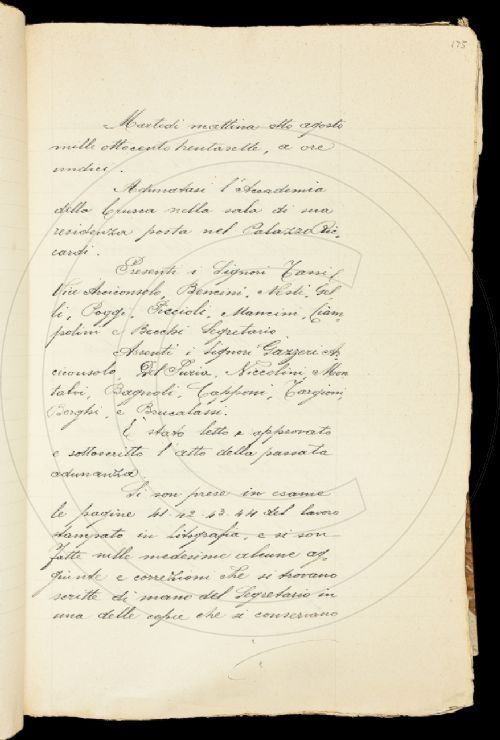 175
Martedì mattina otto agosto
mille ottocento trentasette, a ore
undici.
Adunatasi l'Accademia
della Crusca nella sala di sua
residenza posta nel Palazzo Ric-
cardi.
Presenti i Signori Tassi,
Vice Arciconsolo, Bencini, Nesti, Gel-
li, Poggi, Piccioli, Mancini, Ciam-
polini e Becchi Segretario
Assenti i Signori Gazzeri Ar
ciconsolo, Del Furia, Niccolini Mon
talvi, Bagnoli, Capponi, Targioni,
Borghi, e Brucalassi.
È stato letto e approvato
e sottoscritto l'atto della passata
adunanza
Si son prese in esame
le pagine 41. 42. 43. 44 del lavoro
stampato in litografia, e si son
fatte nelle medesime alcune ag-
giunte e correzioni che si trovano
scritte di mano del Segretario in
una delle copie che si conservano